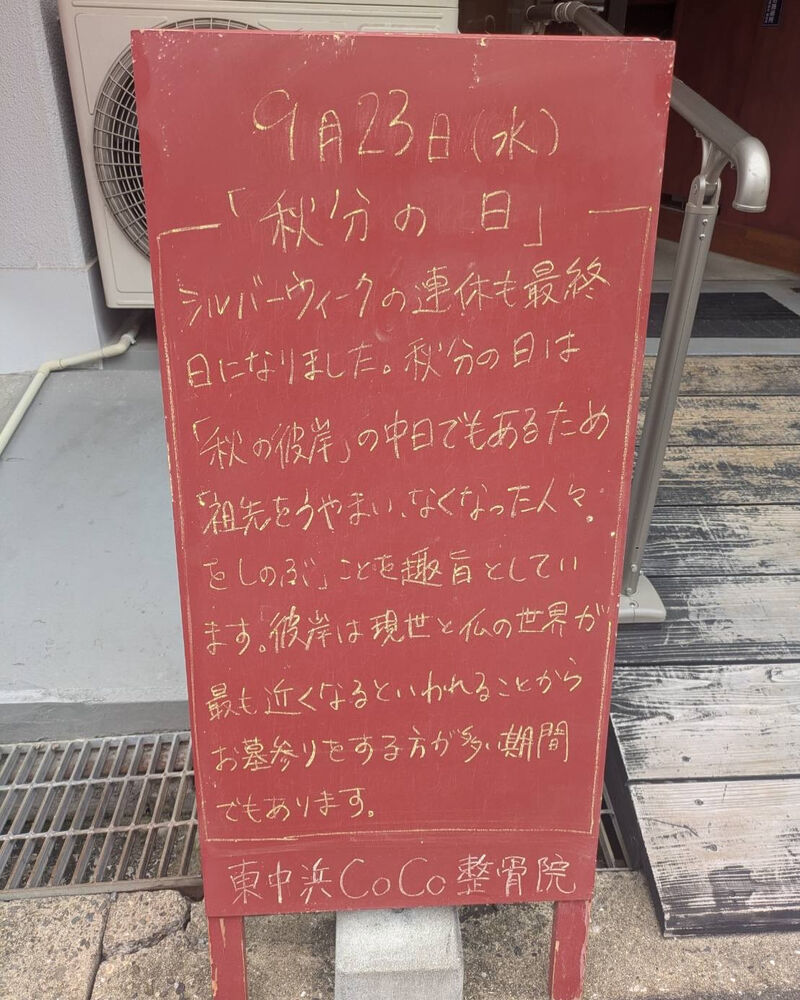 9月23日(水)
「秋分の日」
シルバーウィークの連休も最終
日になりました。秋分の日は
「秋の彼岸」の中日でもあるため
「祖先をうやまい、なくなった人々
をしのぶ」ことを趣旨としてい
ます。彼岸は現世と仏の世界が
最も近くなるといわれることから
お墓参りをする方が多い期間
でもあります。
東中浜CoCo整骨院